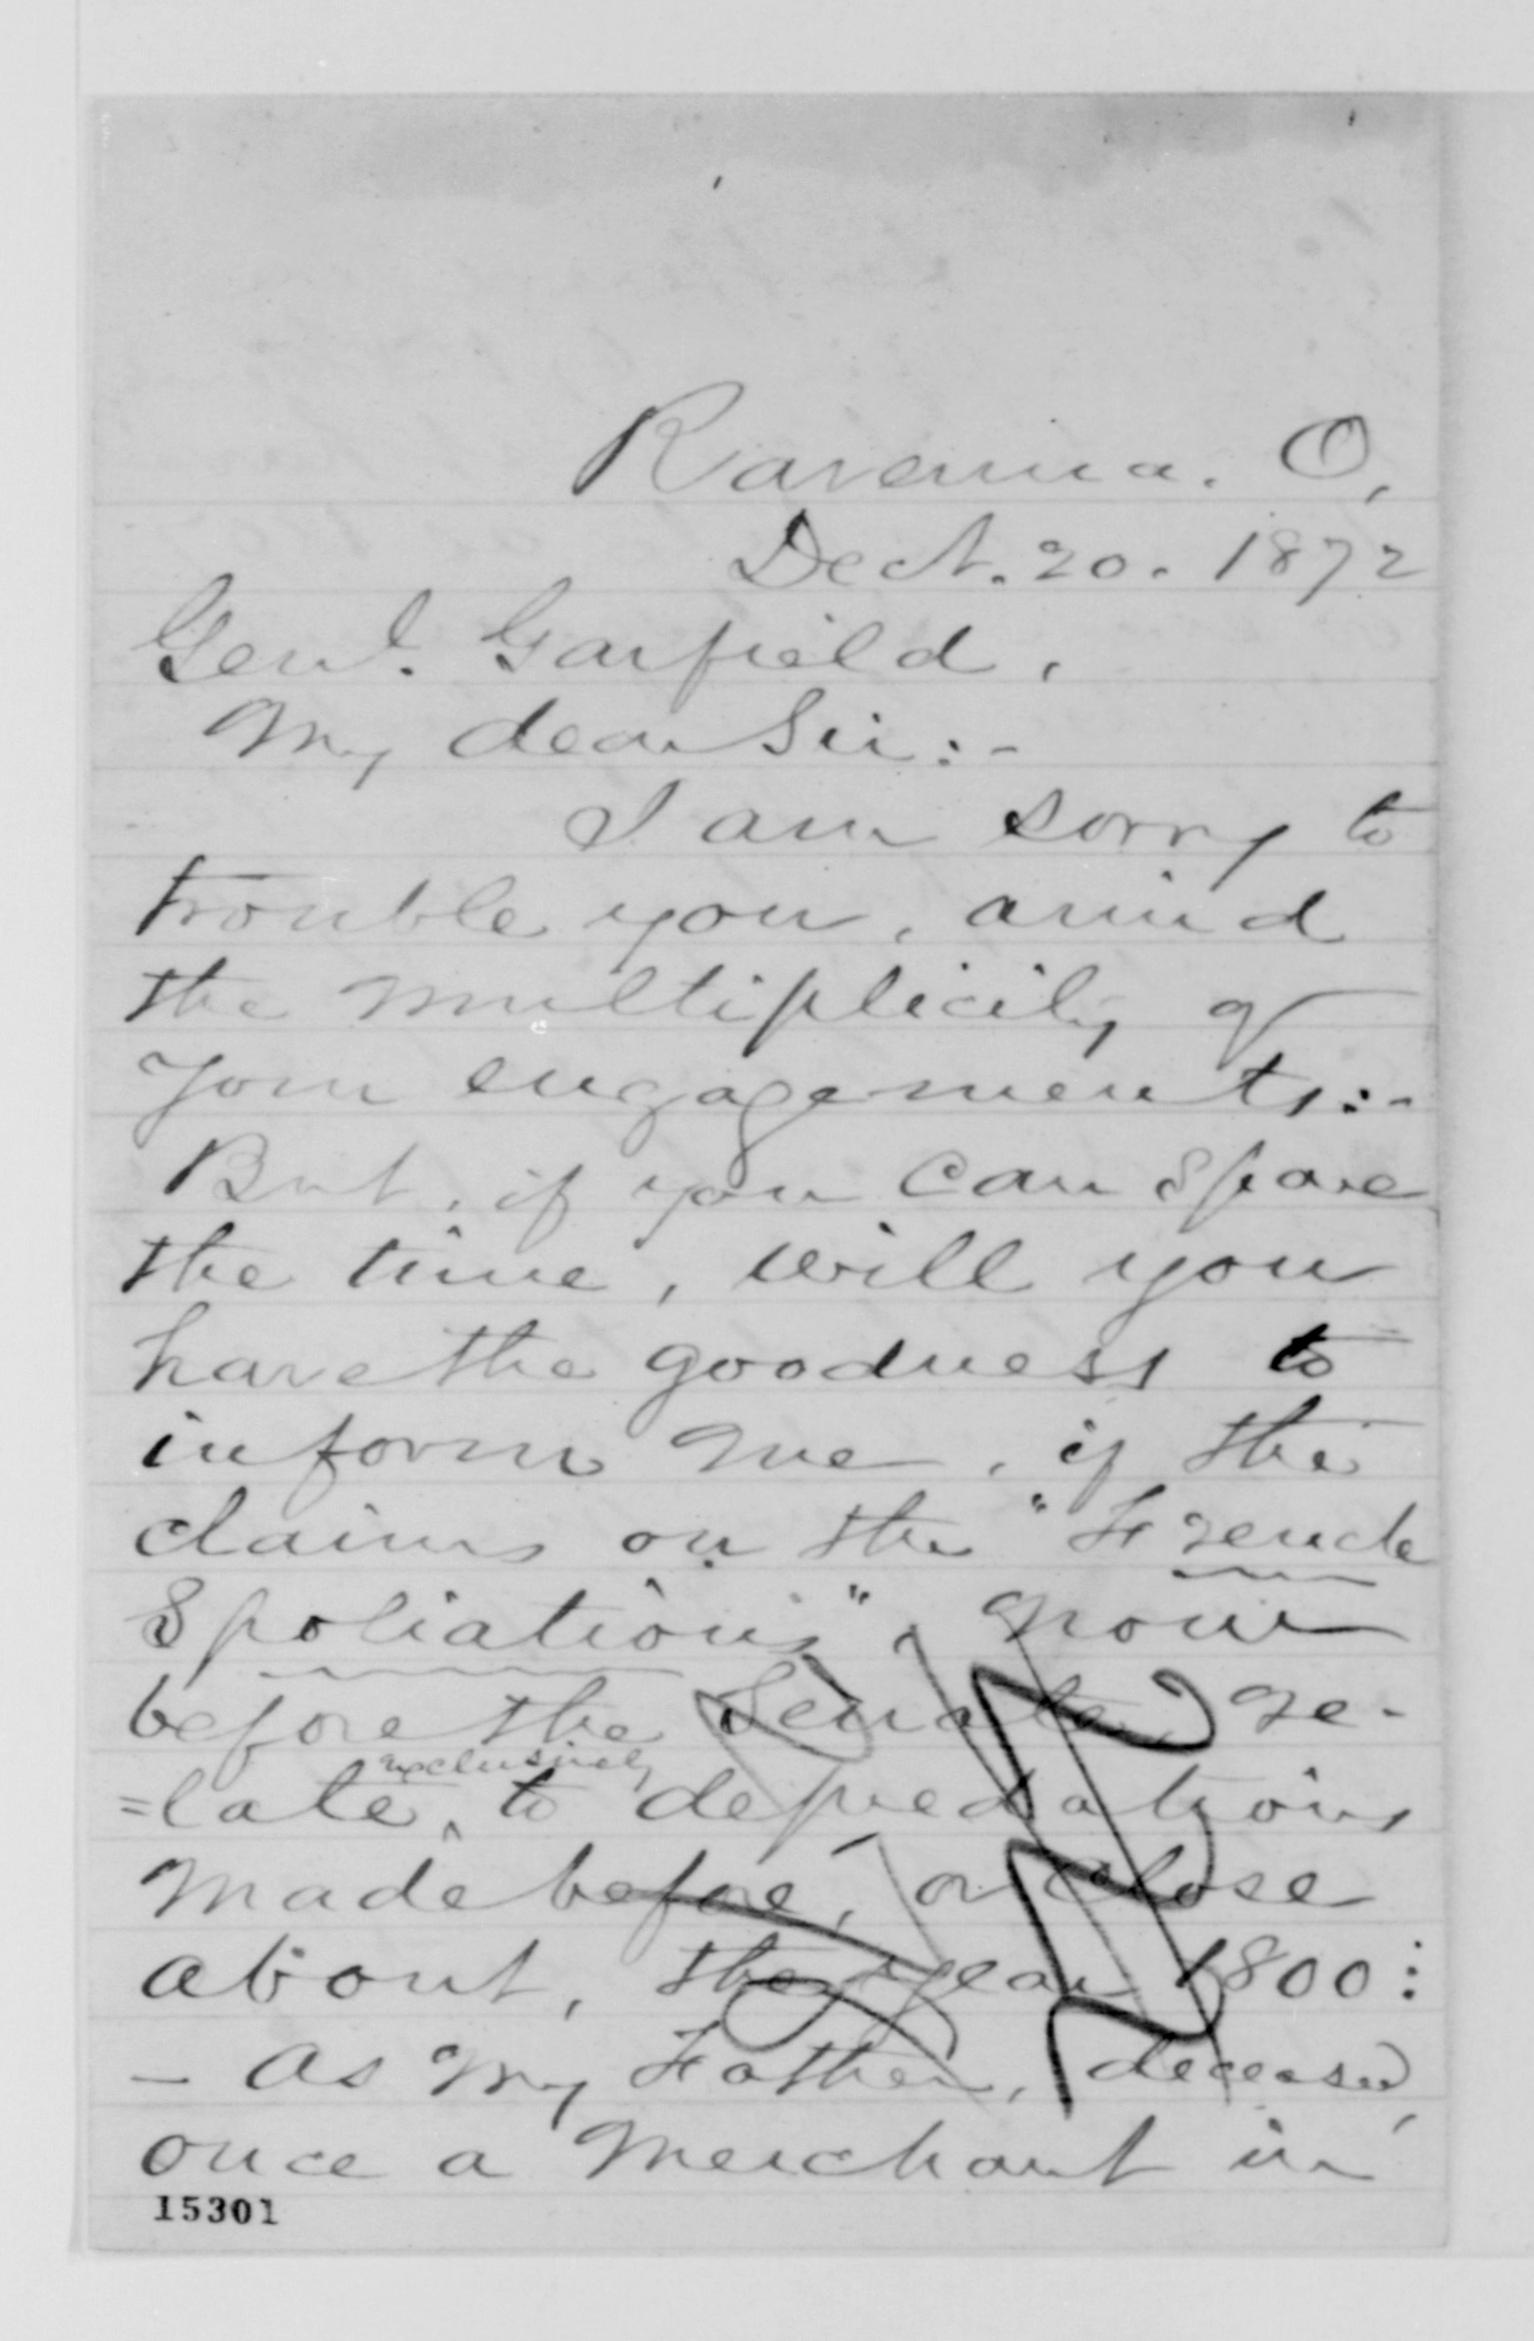 Ravenna. O,
Dect. 20. 1872
Genl. Garfield,
My dear Sir:-
I am sorry to
trouble you, amid
the multiplicity of
your engagements:-
But, if you can spare
the time, will you
have the goodness to
inform me, if the
claims on the "French
Spoliations", now
before the Senate, re-
exclusively
=late, to depredations
made before, or close
about, the year 1800:
- As my Father, deceased,
once a merchant in
15301